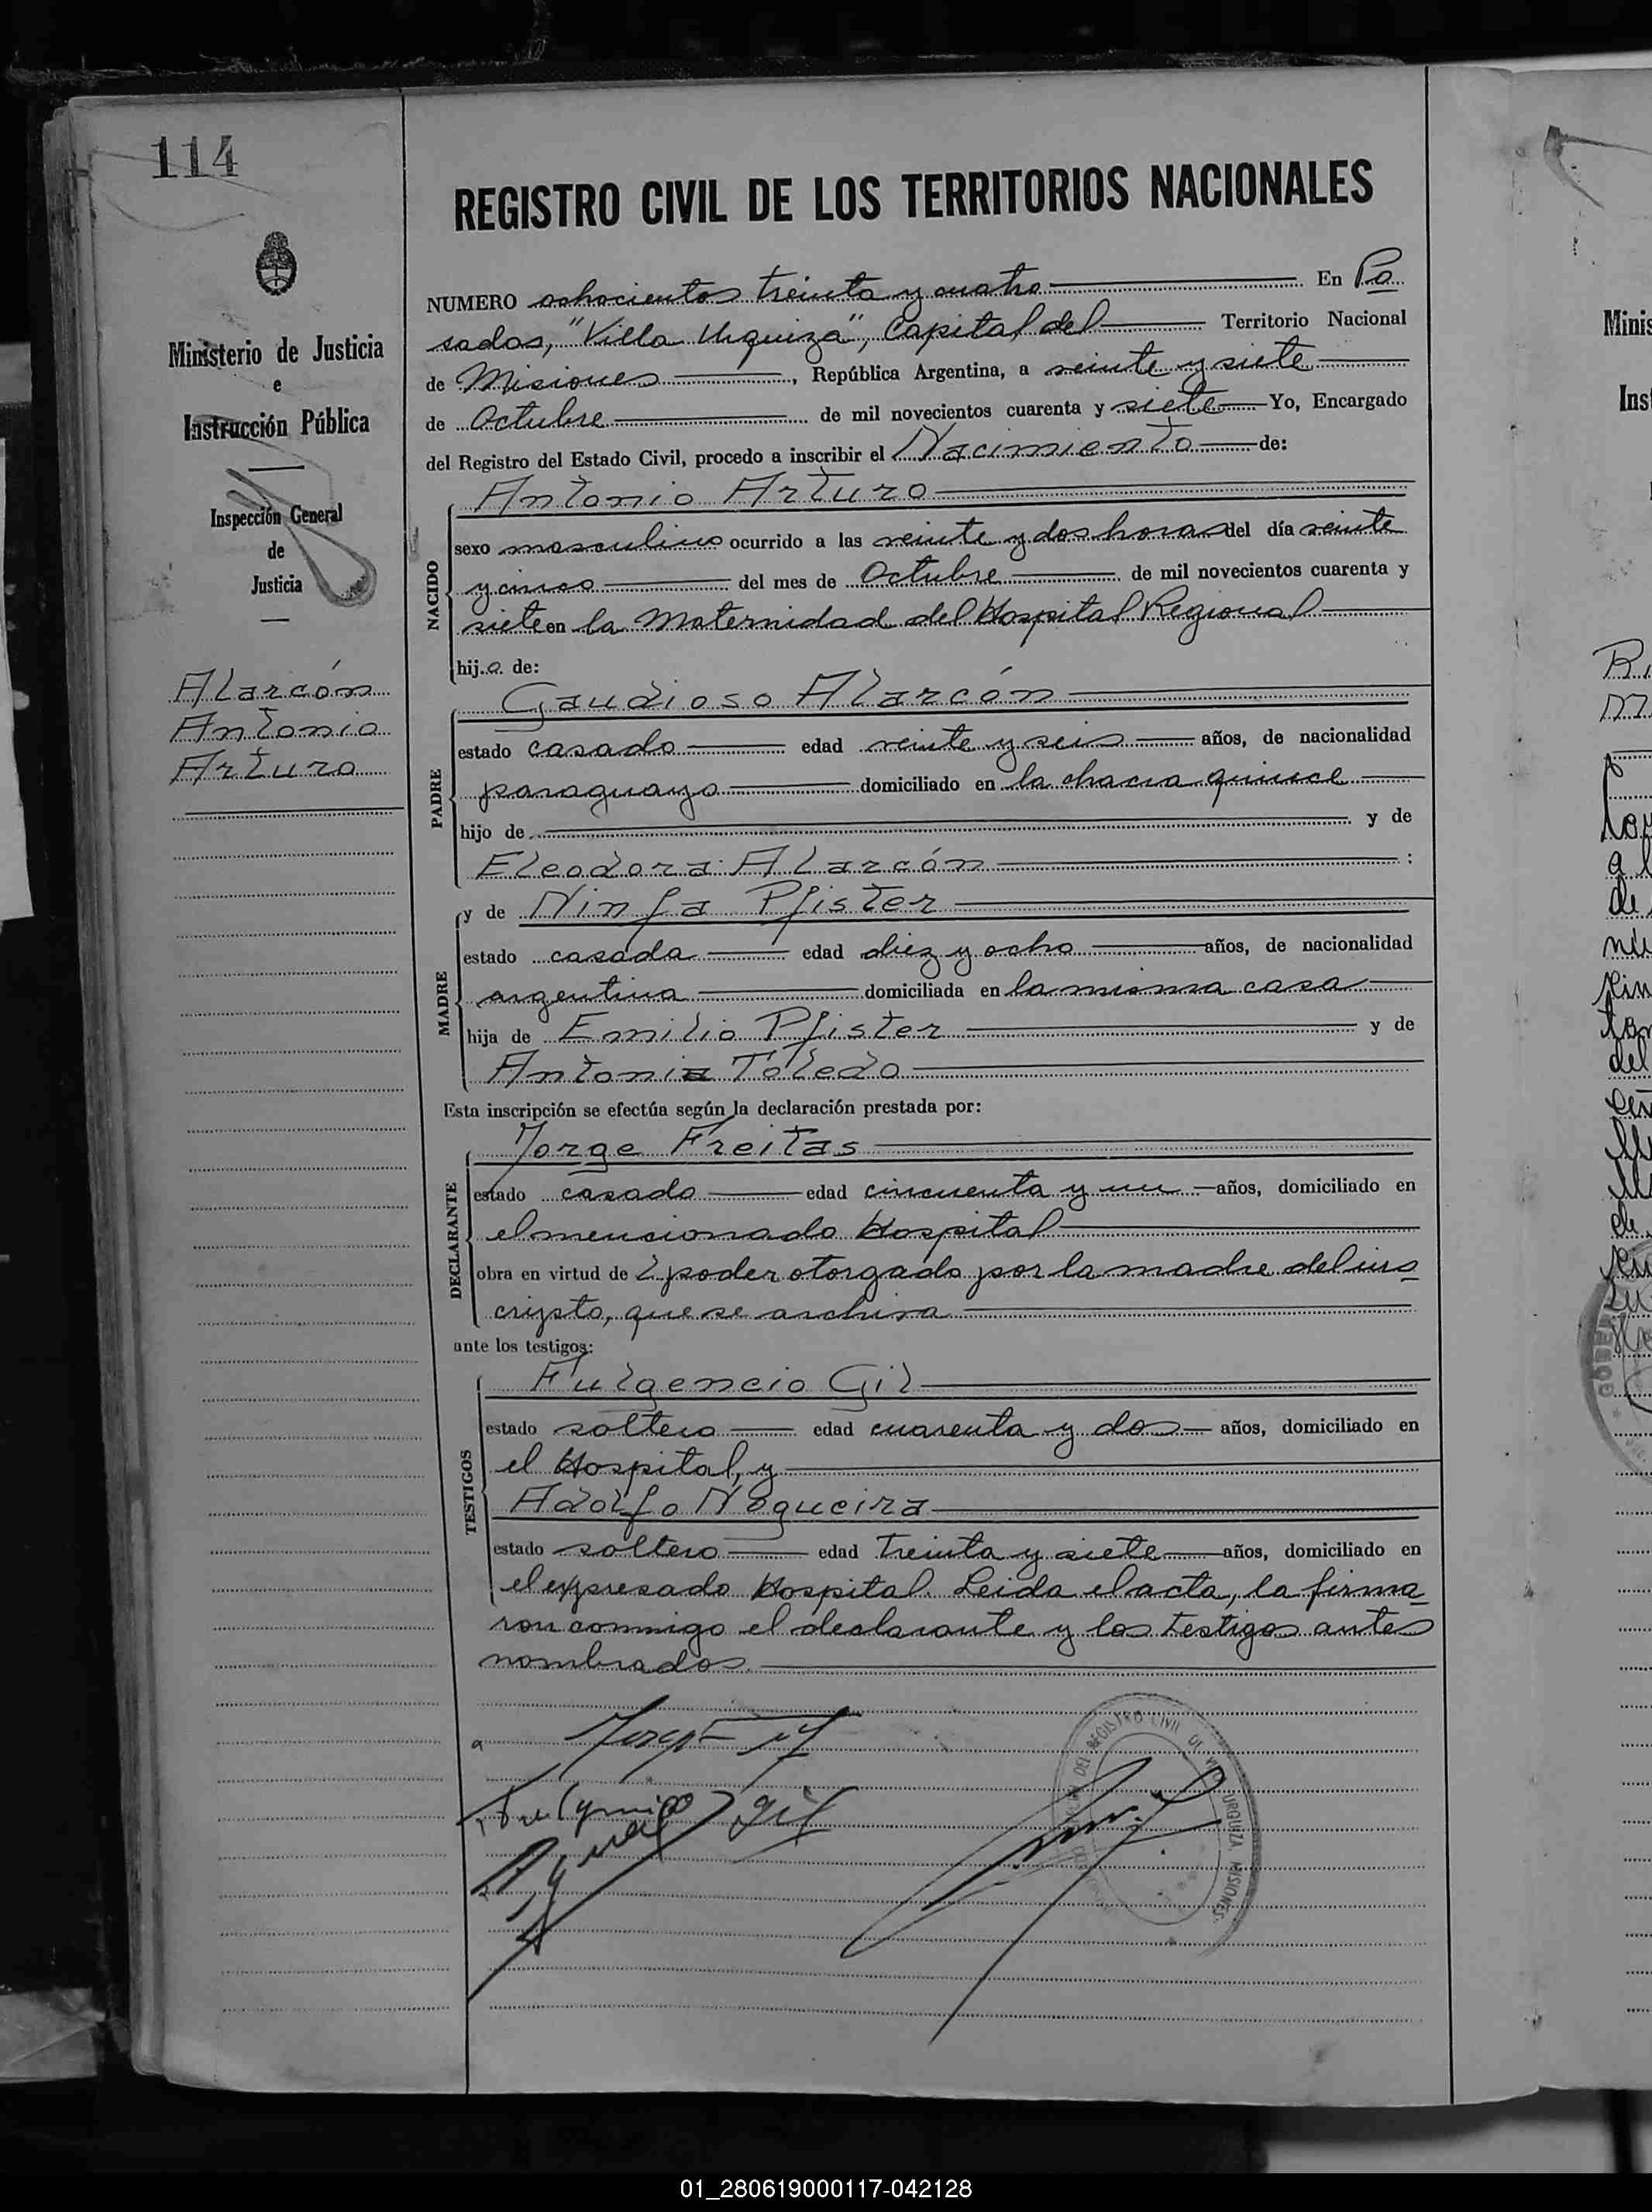 114
REGISTRO CIVIL DE LOS TERRITORIOS NACIONALES
Ministerio de Justicia
e
Instrucción Pública
Inspección General
de
Justicia
Alarcón
Antonio
Arturo
NUMERO ochocientos treinta y cuatro En Po
sadas, "Villa Urquiza", Capital del Territorio Nacional
de Misiones, República Argentina, a veinte y siete
de Octubre de mil novecientos cuarenta y siete Yo, Encargado
del Registro del Estado Civil, procedo a inscribir el Nacimiento de:
Antonio Arturo
NACIDO
sexo masculino ocurrido a las veinte y dos horas del día veinte
y cinco del mes de Octubre de mil novecientos cuarenta y
siete en la Maternidad del Hospital Regional
hijo de:
Gaudioso Alarcón
PADRE
estado casado edad veinte y seis años, de nacionalidad
paraguayo domiciliado en la chacra quince
hijo de y de
Eleodora Alarcón :
y de Ninfa Pfister
MADRE
estado casada edad diez y ocho años, de nacionalidad
argentina domiciliada en la misma casa
hija de Emilio Pfister y de
Antonia Toledo
Esta inscripción se efectúa según la declaración prestada por:
Jorge Freitas
DECLARANTE
estado casado edad cincuenta y un años, domiciliado en
el mencionado Hospital
obra en virtud de el poder otorgado por la madre del ins
cripto, que se archiva
ante los testigos:
Fulgencio Gil
TESTIGOS
estado soltero edad cuarenta y dos años, domiciliado en
el Hospital, y
Adolfo Nogueira
estado soltero edad treinta y siete años, domiciliado en
el expresado Hospital. Leida el acta, la firma
ron conmigo el declarante y los testigos antes
nombrados.
DEL REGISTRO CIVIL DE VILLA URQUIZA MISIONES
Minis
Inst
01_280619000117-042128